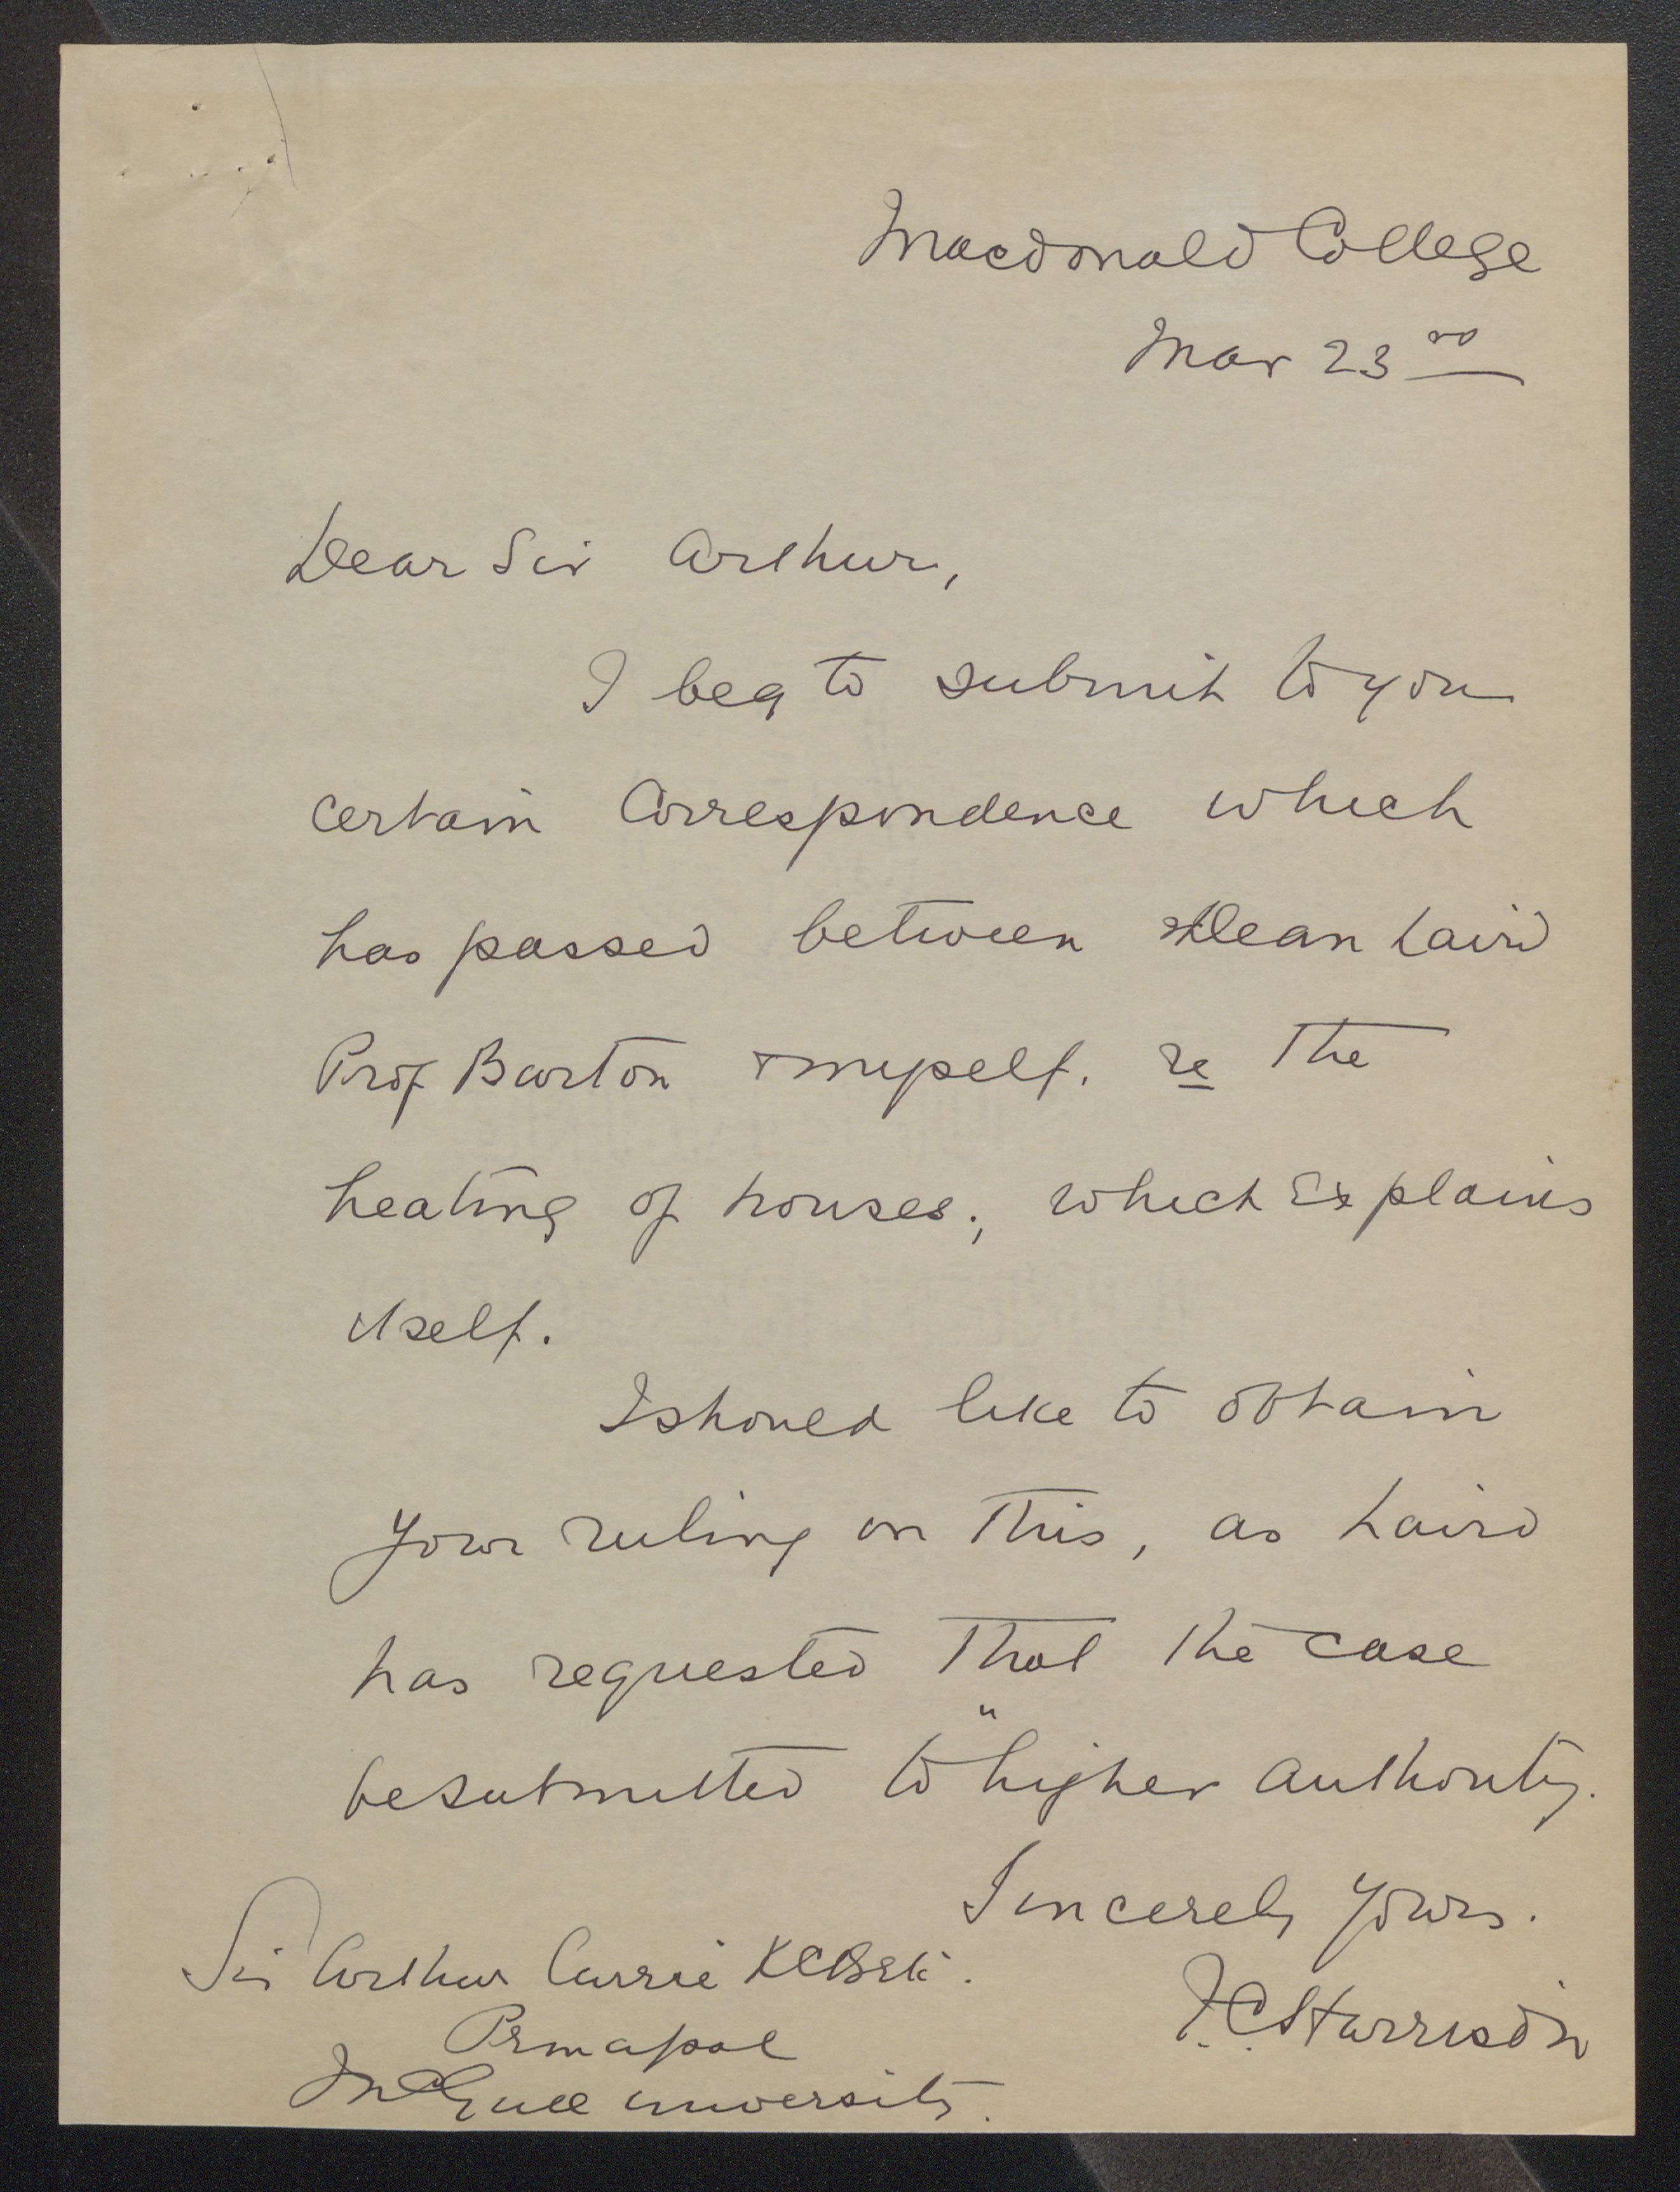 Macdonald College
Mar 23rd
Dear Sir Arthur,
I beg to submit to you
certain Correspondence which
has passed between Dean Laird
Prof Barton & myself. re the
heating of houses; which Explains
itself.
I should like to obtain
your ruling on this, as Laird
has requested that the case
be submitted to "higher authority.
Sincerely Yours.
F.C. Harrison
Sir Arthur Currie KCB etc.
Principal
McGill University.